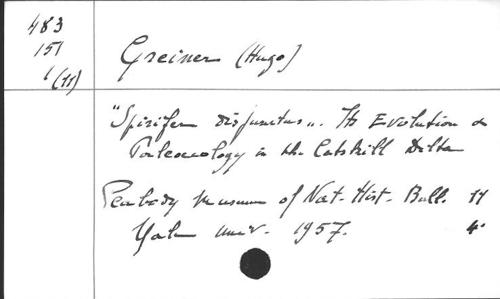 483
151
1(11)
Greiner (Hugo)
"Spirifer disjunctus". Its Evolution &
Paleoecology in the Catskill Delta
Peabody Museum of Nat. Hist. Bull. 11
Yale Univ. 1957. 4°